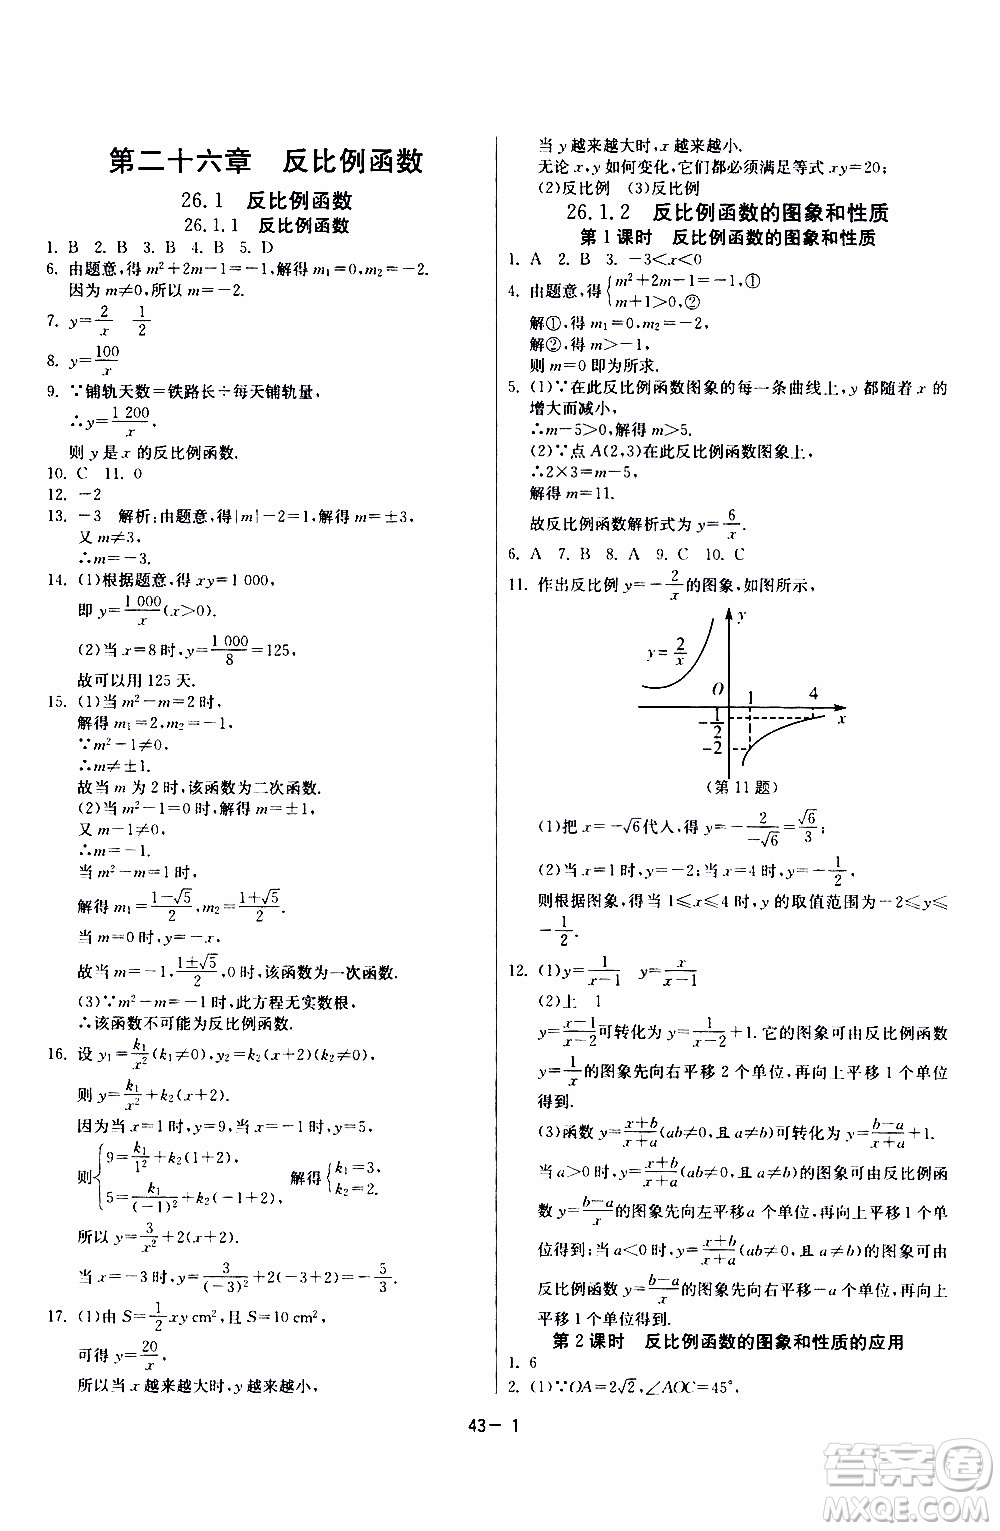 第二十六章 反比例函数
26.1 反比例函数
26.1.1 反比例函数
1. B 2. B 3. B 4. B 5. D
6. 由题意,得 m²+2m-1=-1,解得 m₁=0,m₂=-2.
因为 m≠0,所以 m=-2.
7. y=2/x 1/2
8. y=100/x
9. ∵铺轨天数=铁路长÷每天铺轨量,
∴y=1 200/x,
则 y 是 x 的反比例函数.
10. C 11. 0
12. -2
13. -3 解析:由题意,得|m|-2=1,解得 m=±3,
又 m≠3,
∴m=-3.
14. (1)根据题意,得 xy=1 000,
即 y=1 000/x(x>0).
(2)当 x=8 时,y=1 000/8=125,
故可以用 125 天.
15. (1)当 m²-m=2 时,
解得 m₁=2,m₂=-1,
∵m²-1≠0,
∴m≠±1.
故当 m 为 2 时,该函数为二次函数.
(2)当 m²-1=0 时,解得 m=±1,
又 m-1≠0,
∴m=-1.
当 m²-m=1 时,
解得 m₁=(1-√5)/2,m₂=(1+√5)/2.
当 m=0 时,y=-x,
故当 m=-1,(1±√5)/2,0 时,该函数为一次函数.
(3)∵m²-m=-1 时,此方程无实数根,
∴该函数不可能为反比例函数.
16. 设 y₁=k₁/x²(k₁≠0),y₂=k₂(x+2)(k₂≠0),
则 y=k₁/x²+k₂(x+2),
因为当 x=1 时,y=9,当 x=-1 时,y=5,
则{9=k₁/1²+k₂(1+2), 5=k₁/(-1)²+k₂(-1+2), 解得{k₁=3, k₂=2.
所以 y=3/x²+2(x+2),
当 x=-3 时,y=3/(-3)²+2(-3+2)=-5/3.
17. (1)由 S=1/2xy cm²,且 S=10 cm²,
可得 y=20/x,
所以当 x 越来越大时,y 越来越小,
当 y 越来越大时,x 越来越小.
无论 x,y 如何变化,它们都必须满足等式 xy=20;
(2)反比例 (3)反比例
26.1.2 反比例函数的图象和性质
第 1 课时 反比例函数的图象和性质
1. A 2. B 3. -3<x<0
4. 由题意,得{m²+2m-1=-1,① m+1>0,②
解①,得 m₁=0,m₂=-2,
解②,得 m>-1,
则 m=0 即为所求.
5. (1)∵在此反比例函数图象的每一条曲线上,y 都随着 x 的
增大而减小,
∴m-5>0,解得 m>5.
(2)∵点 A(2,3)在此反比例函数图象上,
∴2×3=m-5,
解得 m=11.
故反比例函数解析式为 y=6/x.
6. A 7. B 8. A 9. C 10. C
11. 作出反比例 y=-2/x的图象,如图所示,
y
y=-2/x
O 1 4
x
-1/2
-2
(第 11 题)
(1)把 x=-√6代人,得 y=-2/-√6=√6/3;
(2)当 x=1 时,y=-2;当 x=4 时,y=-1/2,
则根据图象,当 1≤x≤4 时,y 的取值范围为-2≤y≤
-1/2.
12. (1)y=1/(x-1) y=x/(x-1)
(2)上 1
y=(x-1)/(x-2)可转化为 y=1/(x-2)+1.它的图象可由反比例函数
y=1/x的图象先向右平移 2 个单位,再向上平移 1 个单位
得到.
(3)函数 y=(x+b)/(x+a)(ab≠0,且 a≠b)可转化为 y=(b-a)/(x+a)+1.
当 a>0 时,y=(x+b)/(x+a)(ab≠0,且 a≠b)的图象可由反比例函
数 y=(b-a)/x的图象先向左平移 a 个单位,再向上平移 1 个单
位得到;当 a<0 时,y=(x+b)/(x+a)(ab≠0,且 a≠b)的图象可由
反比例函数 y=(b-a)/x的图象先向右平移-a 个单位,再向上
平移 1 个单位得到.
第 2 课时 反比例函数的图象和性质的应用
1. 6
2. (1)∵OA=2√2,∠AOC=45°,
43- 1
答案圈
MXQE.COM